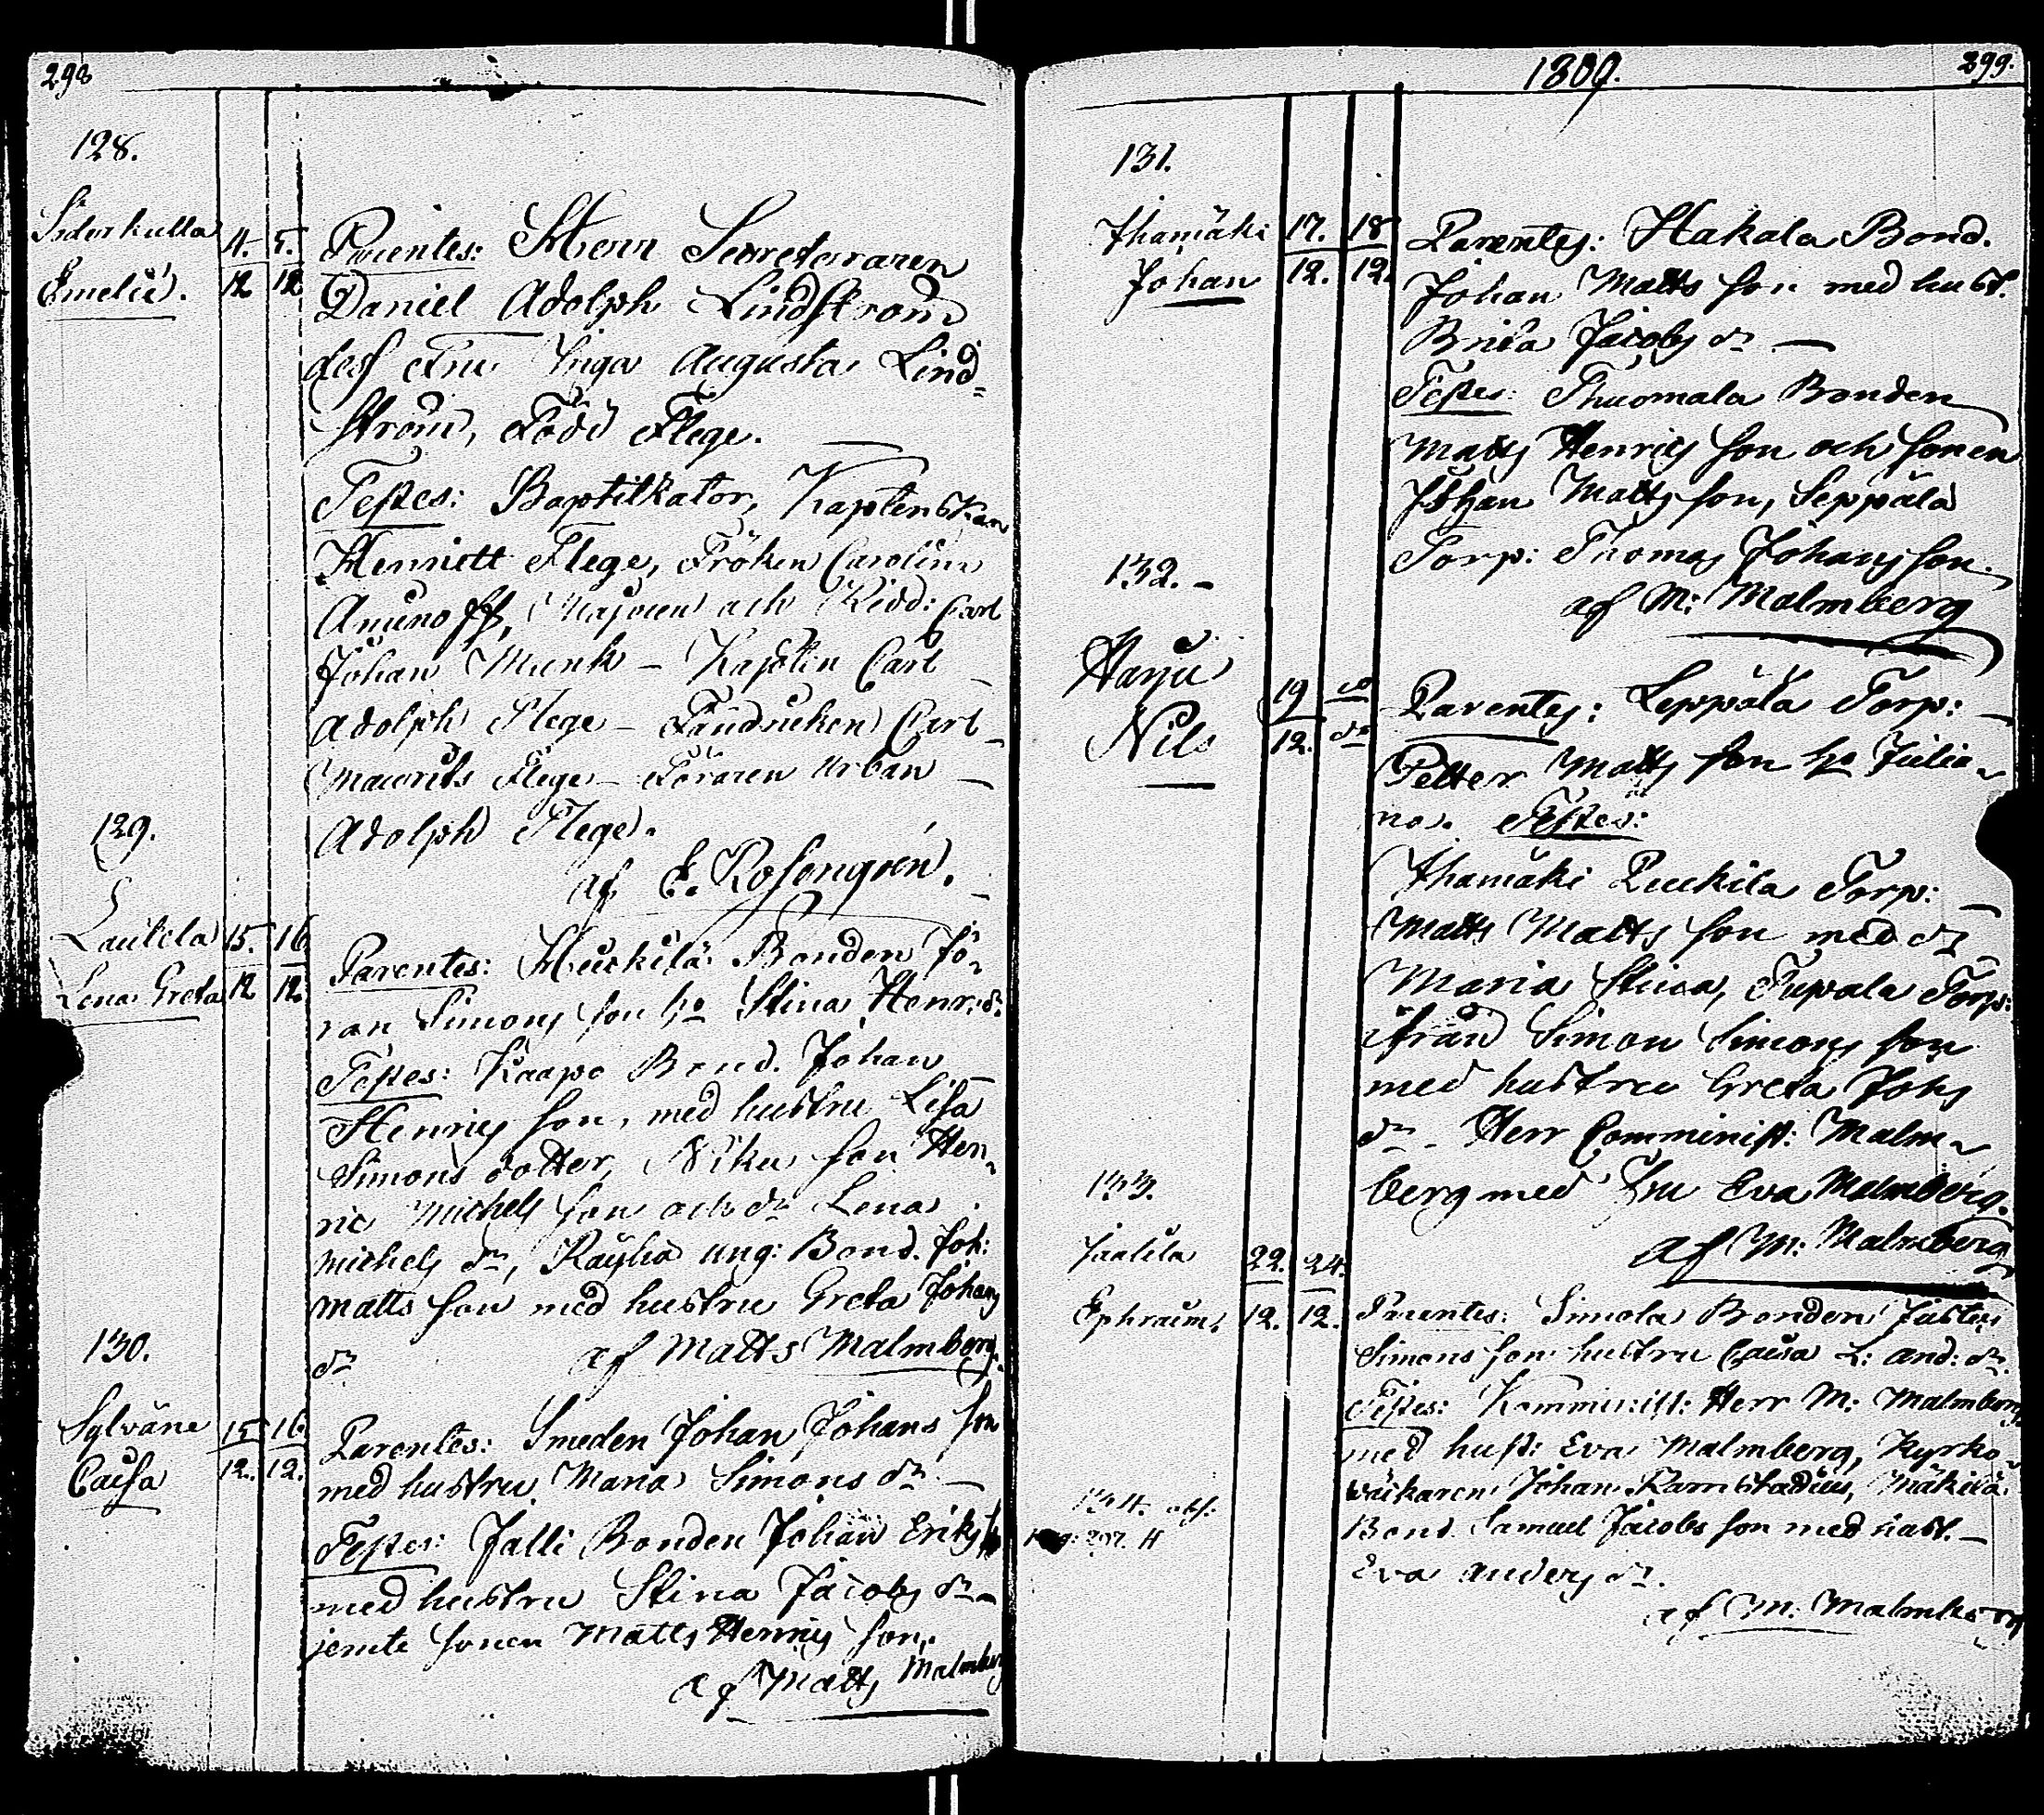 298
128.
Emelie.
4. 5.
12 12
Parentes: Herr Secreteraren
Daniel Adolph Lindström
dess Fru Inga Augusta Lind=
ström, Född Flege.
Testes: Baptilkator, Kaptenskan
Henriett Flege, Fröken Carolina
Majoren och Ridd: Carl
Johan Munk – Kapten Carl
Adolph Flege – Fändricken Carl
Maurits Flege – Föraren Urban
Adolph Flege.
af E. Rosengrén.
129.
Lautila
Lena Greta
15. 16
12 12.
Parentes: Heickilä Bonden Jö-
ran Simons son ho Stina Henr: dr
Testes: Kaapo Bond. Johan
Henrics son, med hustru Lisa
Simons dotter, Niku son Hen-
ric Michels son och dr Lena
Michels dr, ung: Bond. Joh:
Matts son med hustru Greta Johans
dr af Matts Malmberg.
130.
Sylväne
Caisa
15 16.
12. 12.
Parentes: Smeden Johan Johans son
med hustru Maria Simons dr –
Testes: Jalli Bonden Johan Eriks son
med hustru Stina Jacobs dr –
jemte sonen Matts Henrics son.
af Matts Malmberg
1809.
299.
131.
Ihamäki
Johan
17. 18
12. 12.
Parentes: Hakala Bond.
Johan Matts son med hust.
Brita Jacobs dr –
Testes: Thuomala Bonden
Matts Henrics son och sonen
Johan Matts son, Seppälä
Torp: Thomas Johans son.
af M: Malmberg
132. –
Harju
Nils
19
12. dr
Parentes: Leppälä Torp:
Petter Matts son ho Julia-
na. Testes:
Ihamäki Torp:
Matts Matts son med dr
Maria Stina, Tupala Torp:
ifrån Simon Simons son
med hustru Greta Johs
dr – Herr Comminist: Malm-
berg med Fru Eva Malmberg.
af M: Malmberg
133.
Jaatila
Ephraim.
22. 24.
12. 12.
Parentes: Simola Bonden Justus
Simons son hustru Caisa L: And: dr
Testes: Komminist: Herr M: Malmberg
med hust: Eva Malmberg, Kyrko-
väckaren Johan Ramstadius, Mäkilä
Bond. Samuel Jacobs son med hust. –
Eva Anders dr.
af M: Malmberg
134.
297.